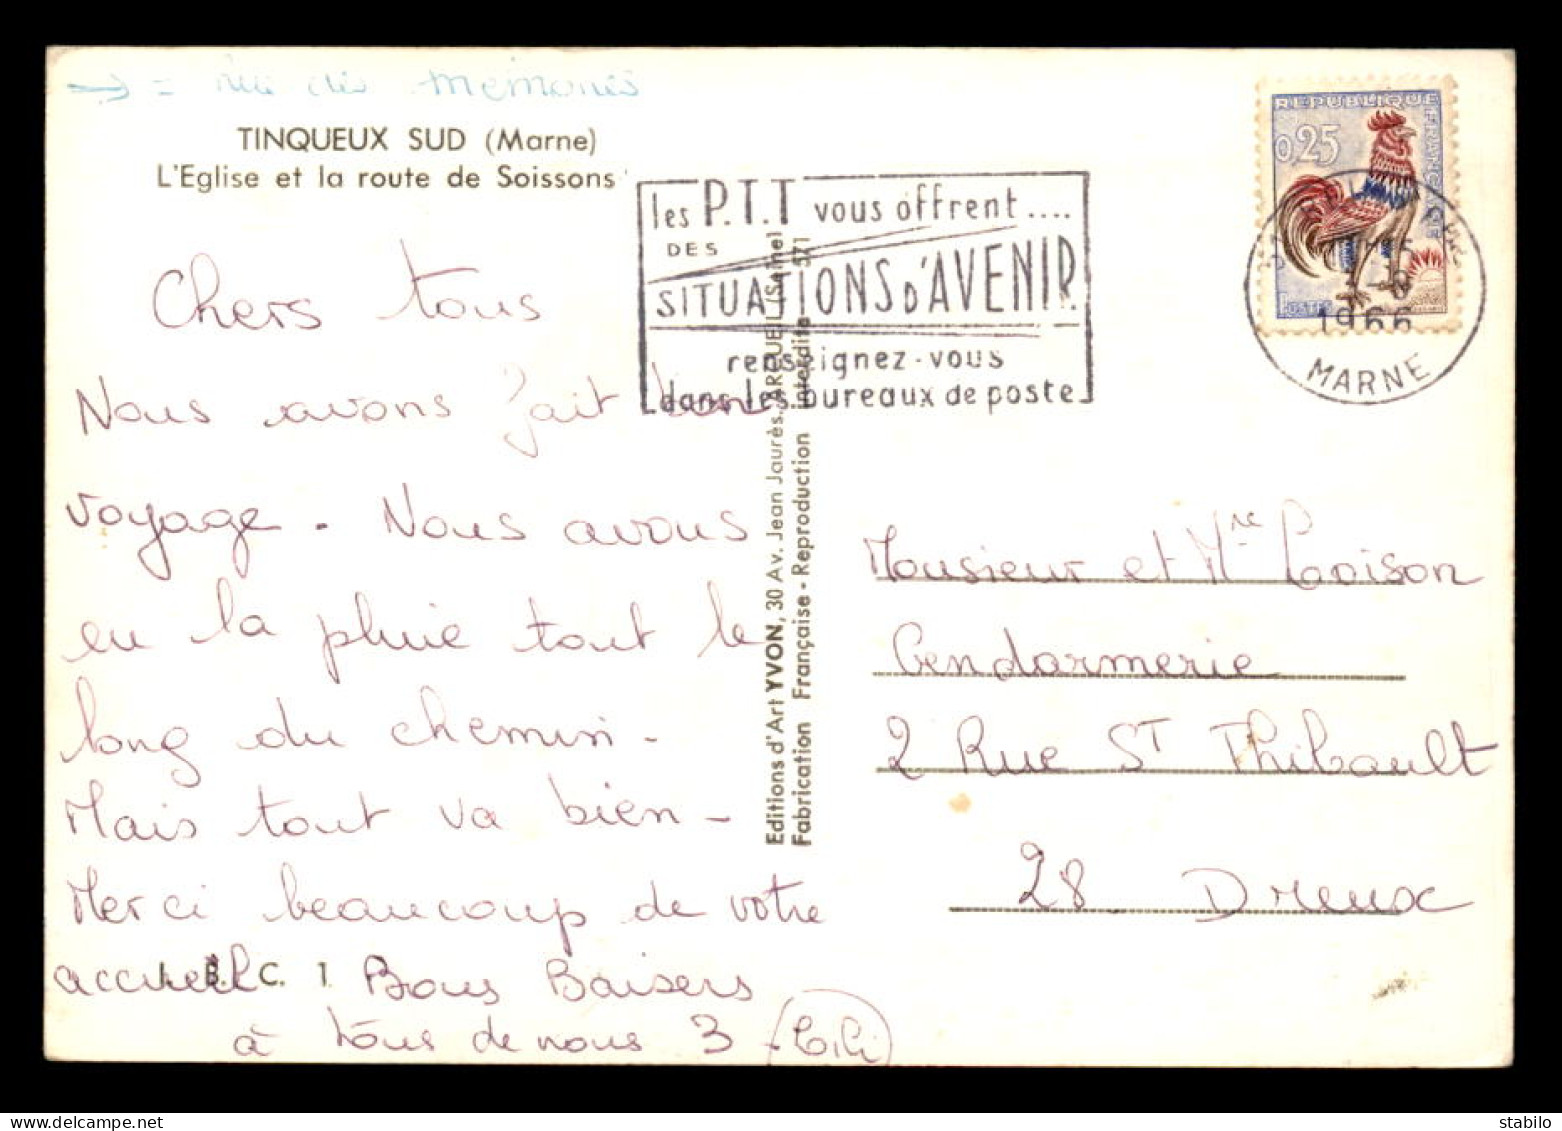 → = rue des
TINQUEUX SUD (Marne)
L'Eglise et la route de Soissons
Chers tous
Nous avons fait bon
voyage - Nous avons
eu la pluie tout le
long du chemin -
Mais tout va bien -
Merci beaucoup de votre
accueil Bons Baisers
à tous de nous 3 -
B. C. 1
les P.T.T vous offrent....
DES
SITUATIONS D'AVENIR
renseignez-vous
dans les bureaux de poste
Editions d'Art YVON, 30 Av. Jean Jaurès, ARCUEIL (Seine)
Fabrication Française - Reproduction interdite 571
REPUBLIQUE FRANCAISE
0,25
POSTES
1966
MARNE
Monsieur et Mme Loison
Gendarmerie
2 Rue St Thibault
28 Dreux
www.delcampe.net
stobilo